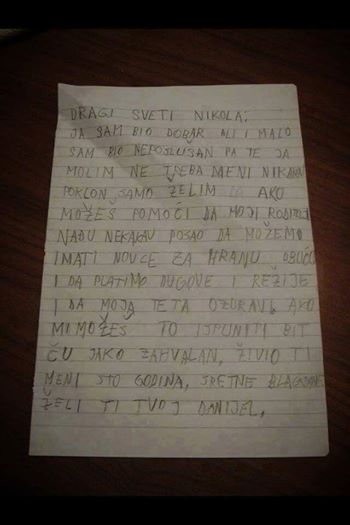 DRAGI SVETI NIKOLA:
JA SAM BIO DOBAR ALI I MALO
SAM BIO NEPOSLUŠAN PA TE JA
MOLIM NE TREBA MENI NIKAKAV
POKLON SAMO ŽELIM AKO
MOŽEŠ POMOĆI DA MOJI RODITELJI
NAĐU NEKAKAV POSAO DA MOŽEMO
IMATI NOVCE ZA HRANU OBUĆU
I DA PLATIMO DUGOVE I REŽIJE
I DA MOJA TETA OZDRAVI, AKO
MI MOŽEŠ TO ISPUNITI BIT
ĆU JAKO ZAHVALAN, ŽIVIO TI
MENI STO GODINA, SRETNE BLAGDANE
ŽELI TI TVOJ DANIJEL.